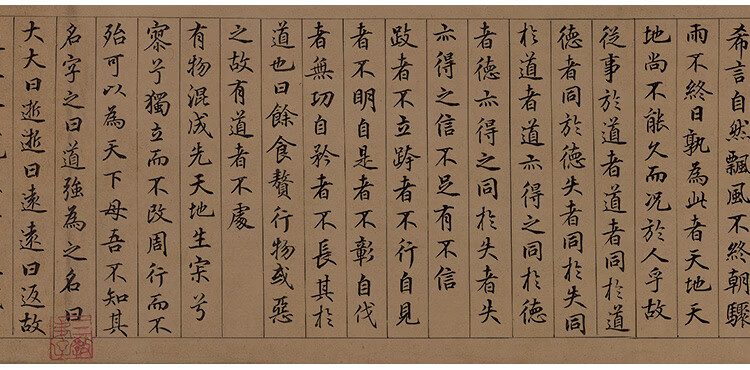 希言自然飄風不終朝驟
雨不終日孰為此者天地天
地尚不能久而況於人乎故
從事於道者道者同於道
德者同於德失者同於失同
於道者道亦得之同於德
者德亦得之同於失者失
亦得之信不足有不信
跂者不立跨者不行自見
者不明自是者不彰自伐
者無功自矜者不長其於
道也曰餘食贅行物或惡
之故有道者不處
有物混成先天地生寂兮
寥兮獨立而不改周行而不
殆可以為天下母吾不知其
名字之曰道強為之名曰
大大曰逝逝曰遠遠曰返故